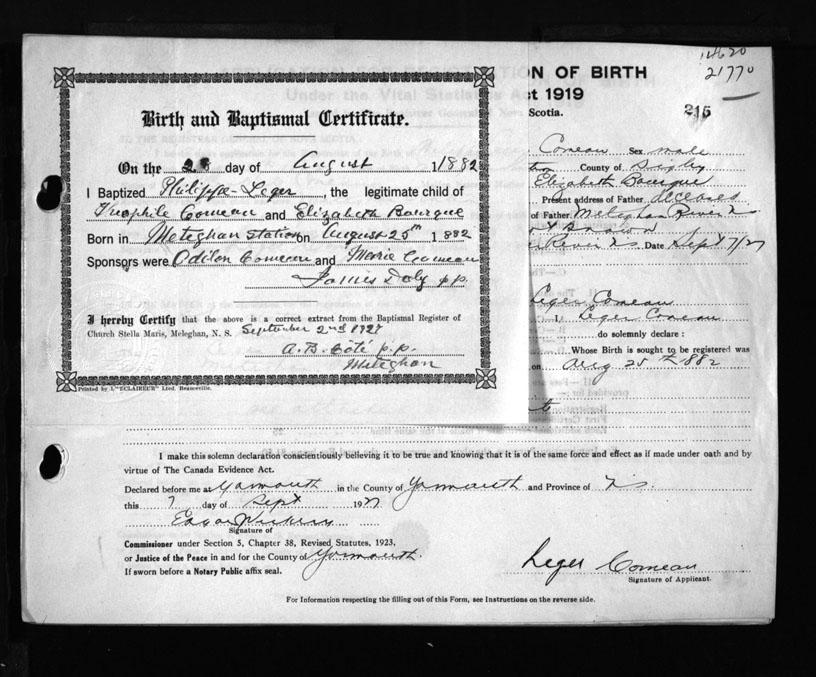 14620
21770
N OF BIRTH
ct 1919
Scotia.
215
Birth and Baptismal Certificate.
On the 28 day of August 1882
I Baptized Philippe-Leger, the legitimate child of
Theophile Comeau and Elizabeth Bourque
Born in Meteghan Station on August 25th 1882
Sponsors were Odilon Comeau and Marie Comeau
James Daly p.p.
I hereby Certify that the above is a correct extract from the Baptismal Register of
Church Stella Maris, Meleghan, N. S. September 2nd 1927
A. B. Côté p.p.
Meteghan
Printed by L'"ECLAIREUR" Lted. Beauceville.
Comeau Sex male
County of Digby
Elizabeth Bourque
Present address of Father deceased
of Father Meteghan River Ns
River Ns Date Sept 7/27
Leger Comeau
I, Leger Comeau
do solemnly declare :
Whose Birth is sought to be registered was
on Aug 25th 1882
I make this solemn declaration conscientiously believing it to be true and knowing that it is of the same force and effect as if made under oath and by
virtue of The Canada Evidence Act.
Declared before me at Yarmouth in the County of Yarmouth and Province of Ns.
this 7 day of Sept 1927
Signature of
Commissioner under Section 5, Chapter 38, Revised Statutes, 1923,
or Justice of the Peace in and for the County of Yarmouth.
If sworn before a Notary Public affix seal.
Leger Comeau
Signature of Applicant.
For Information respecting the filling out of this Form, see Instructions on the reverse side.